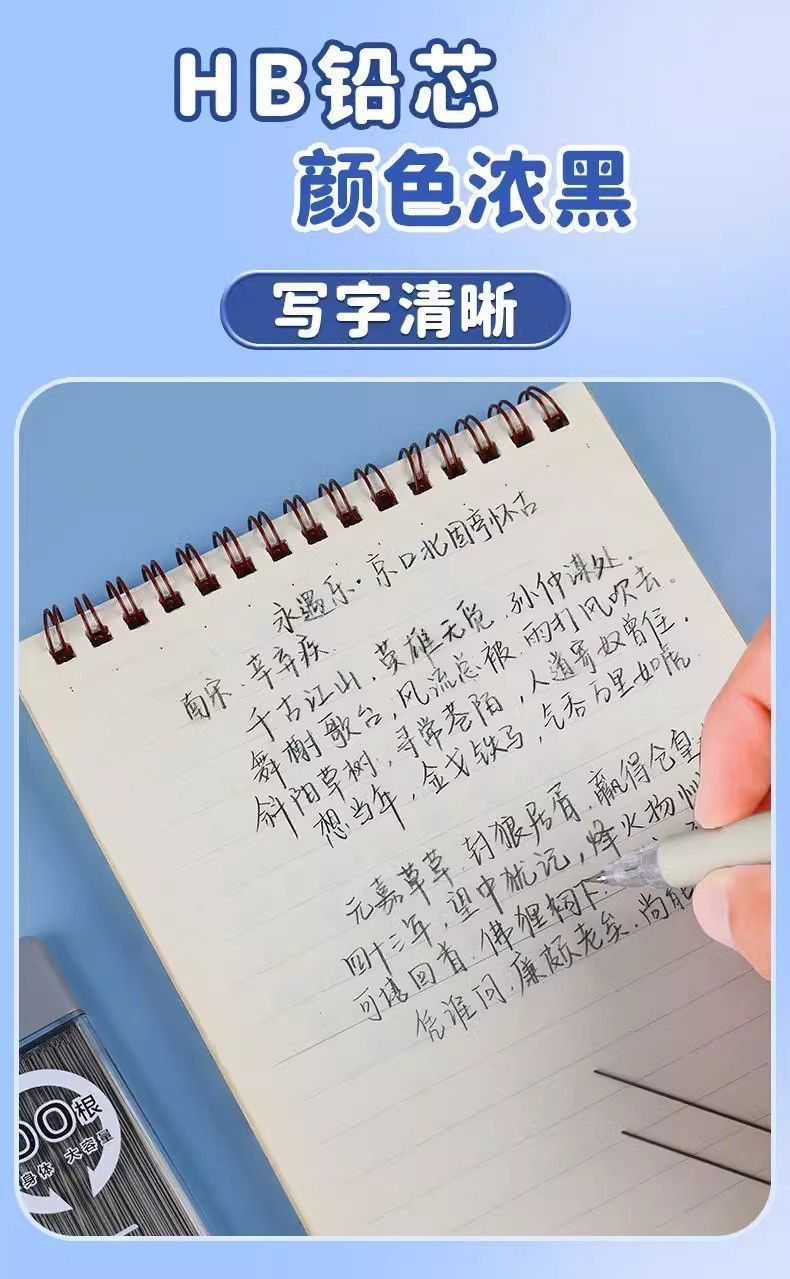 HB铅芯
颜色浓黑
写字清晰
永遇乐·京口北固亭怀古
南宋·辛弃疾
千古江山,英雄无觅,孙仲谋处。
舞榭歌台,风流总被,雨打风吹去。
斜阳草树,寻常巷陌,人道寄奴曾住。
想当年,金戈铁马,气吞万里如虎
元嘉草草,封狼居胥,赢得仓皇
四十三年,望中犹记,烽火扬州
可堪回首,佛狸祠下
凭谁问,廉颇老矣,尚能
00根
身体 大容量